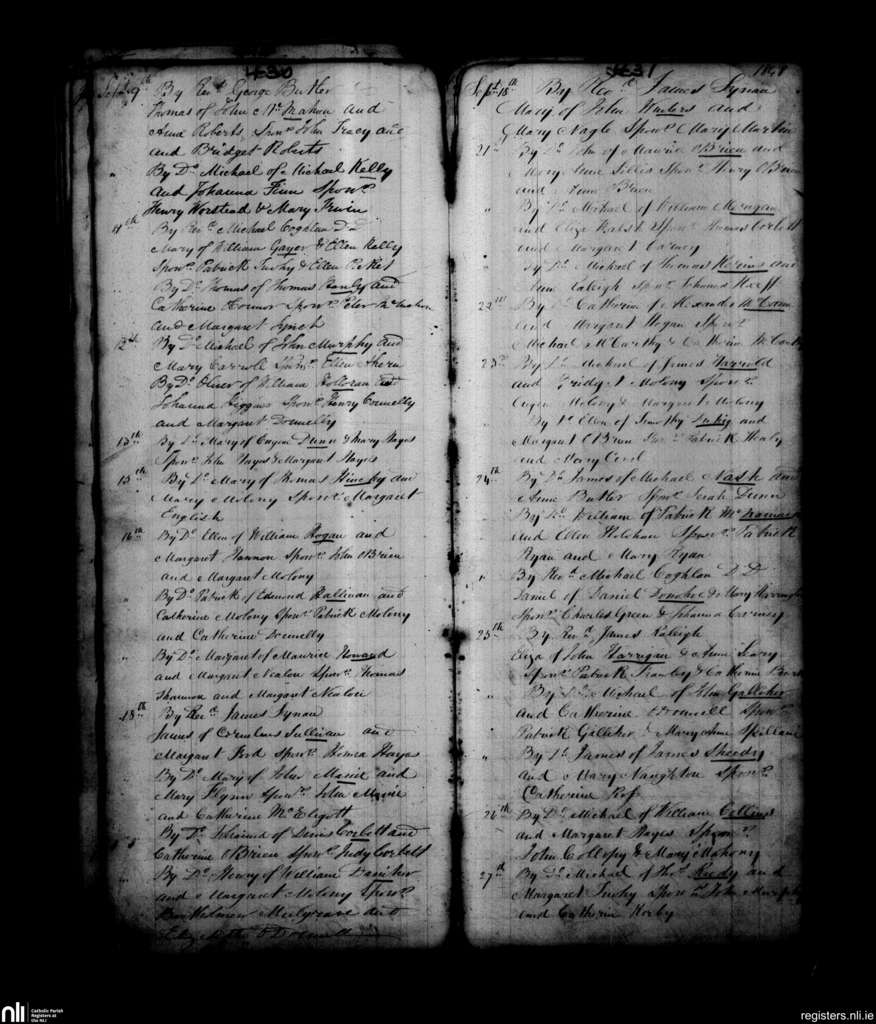 430
Sept 9th By Revd George Butler
Thomas of John McMahon and
Anne Roberts Sponrs John Tracy and
and Bridget Roberts
" By Do Michael of Michael Kelly
and Johanna Finn Sponrs
Henry Worstead & Mary Irwin
11th By Revd Michael Coghlan D.D
Mary of William Gayer & Ellen Kelly
Sponrs Patrick Tuohy & Ellen
By Do Thomas of Thomas and
Catherine Connor Sponrs Peter McMahon
and Margaret Lynch
12th By Do Michael of John Murphy and
Mary Carroll Sponrs Ellen Ahern
By Do Oliver of William Holloran and
Johanna Higgins Sponrs Henry Connelly
and Margaret Donnelly
13th By Do Mary of Eugene Dunn & Mary Hayes
Sponrs John Hayes & Margaret Hayes
15th By Do Mary of Thomas and
Mary Molony Sponrs Margaret
English
16th By Do Ellen of William Hogan and
Margaret Hannon Sponrs John OBrien
and Margaret Molony
" By Do Patrick of Edmond Hallinan and
Catherine Molony Sponrs Patrick Molony
and Catherine Donnelly
" By Do Margaret of Maurice and
and Margaret Nealon Sponrs Thomas
Shannon and Margaret Nealon
18th By Revd James Synan
James of Cornelius Sullivan and
Margaret Ford Sponrs Honora Hayes
By Do Mary of John and
Mary Flynn Sponrs John
and Catherine McEligott
By Do Johanna of Denis Corbett and
Catherine OBrien Sponrs Judy Corbett
By Do Henry of William Daniher
and Margaret Molony Sponrs
Bartholomew Mulgrave and
Elizabeth O Donnell
431 1841
Sept 18th By Revd James Synan
Mary of John Winters and
Mary Nagle Sponrs Mary Martin
21st By Do John of Maurice OBrien and
Mary Anne Sponrs Henry OBrien
and Anne OBrien
" By Do Michael of William Mangan
and Eliza Walsh Sponrs Thomas Corbett
and Margaret Carney
" By Do Michael of Thomas Kerins and
Ann Raleigh Sponrs Johanna
22nd By Do Catherine of Alexander McCann
and Margaret Hogan Sponrs
Michael McCarthy & Catherine McCarthy
23rd By Do Michael of James Harrold
and Bridget Molony Sponrs
Eugene Molony & Margaret Molony
By Do Ellen of Timothy and
Margaret OBrien Sponrs Patrick Healy
and Mary
24th By Do James of Michael Nash and
Anne Butler Sponrs Sarah Dunn
By Do William of Patrick McNamara
and Ellen Sponrs Patrick
Ryan and Mary Ryan
" By Revd Michael Coghlan D D
Daniel of Daniel Donohoe & Mary
Sponrs Charles Green & Johanna
25th By Revd James Raleigh
Eliza of John Harrigan & Anne Leary
Sponrs Patrick & Catherine
" By Do Michael of John Galliher
and Catherine Sponrs
Patrick Galliher & Mary Anne Spillane
" By Do James of James Sheedy
and Mary Naughton Sponrs
Catherine
26th By Do Michael of William Collins
and Margaret Hayes Sponrs
John Collopy & Mary Mahony
27th By Do Michael of Thos and
Margaret Tuohy Sponrs John Murphy
and Catherine
nli Catholic Parish
Registers at
the NLI
registers.nli.ie